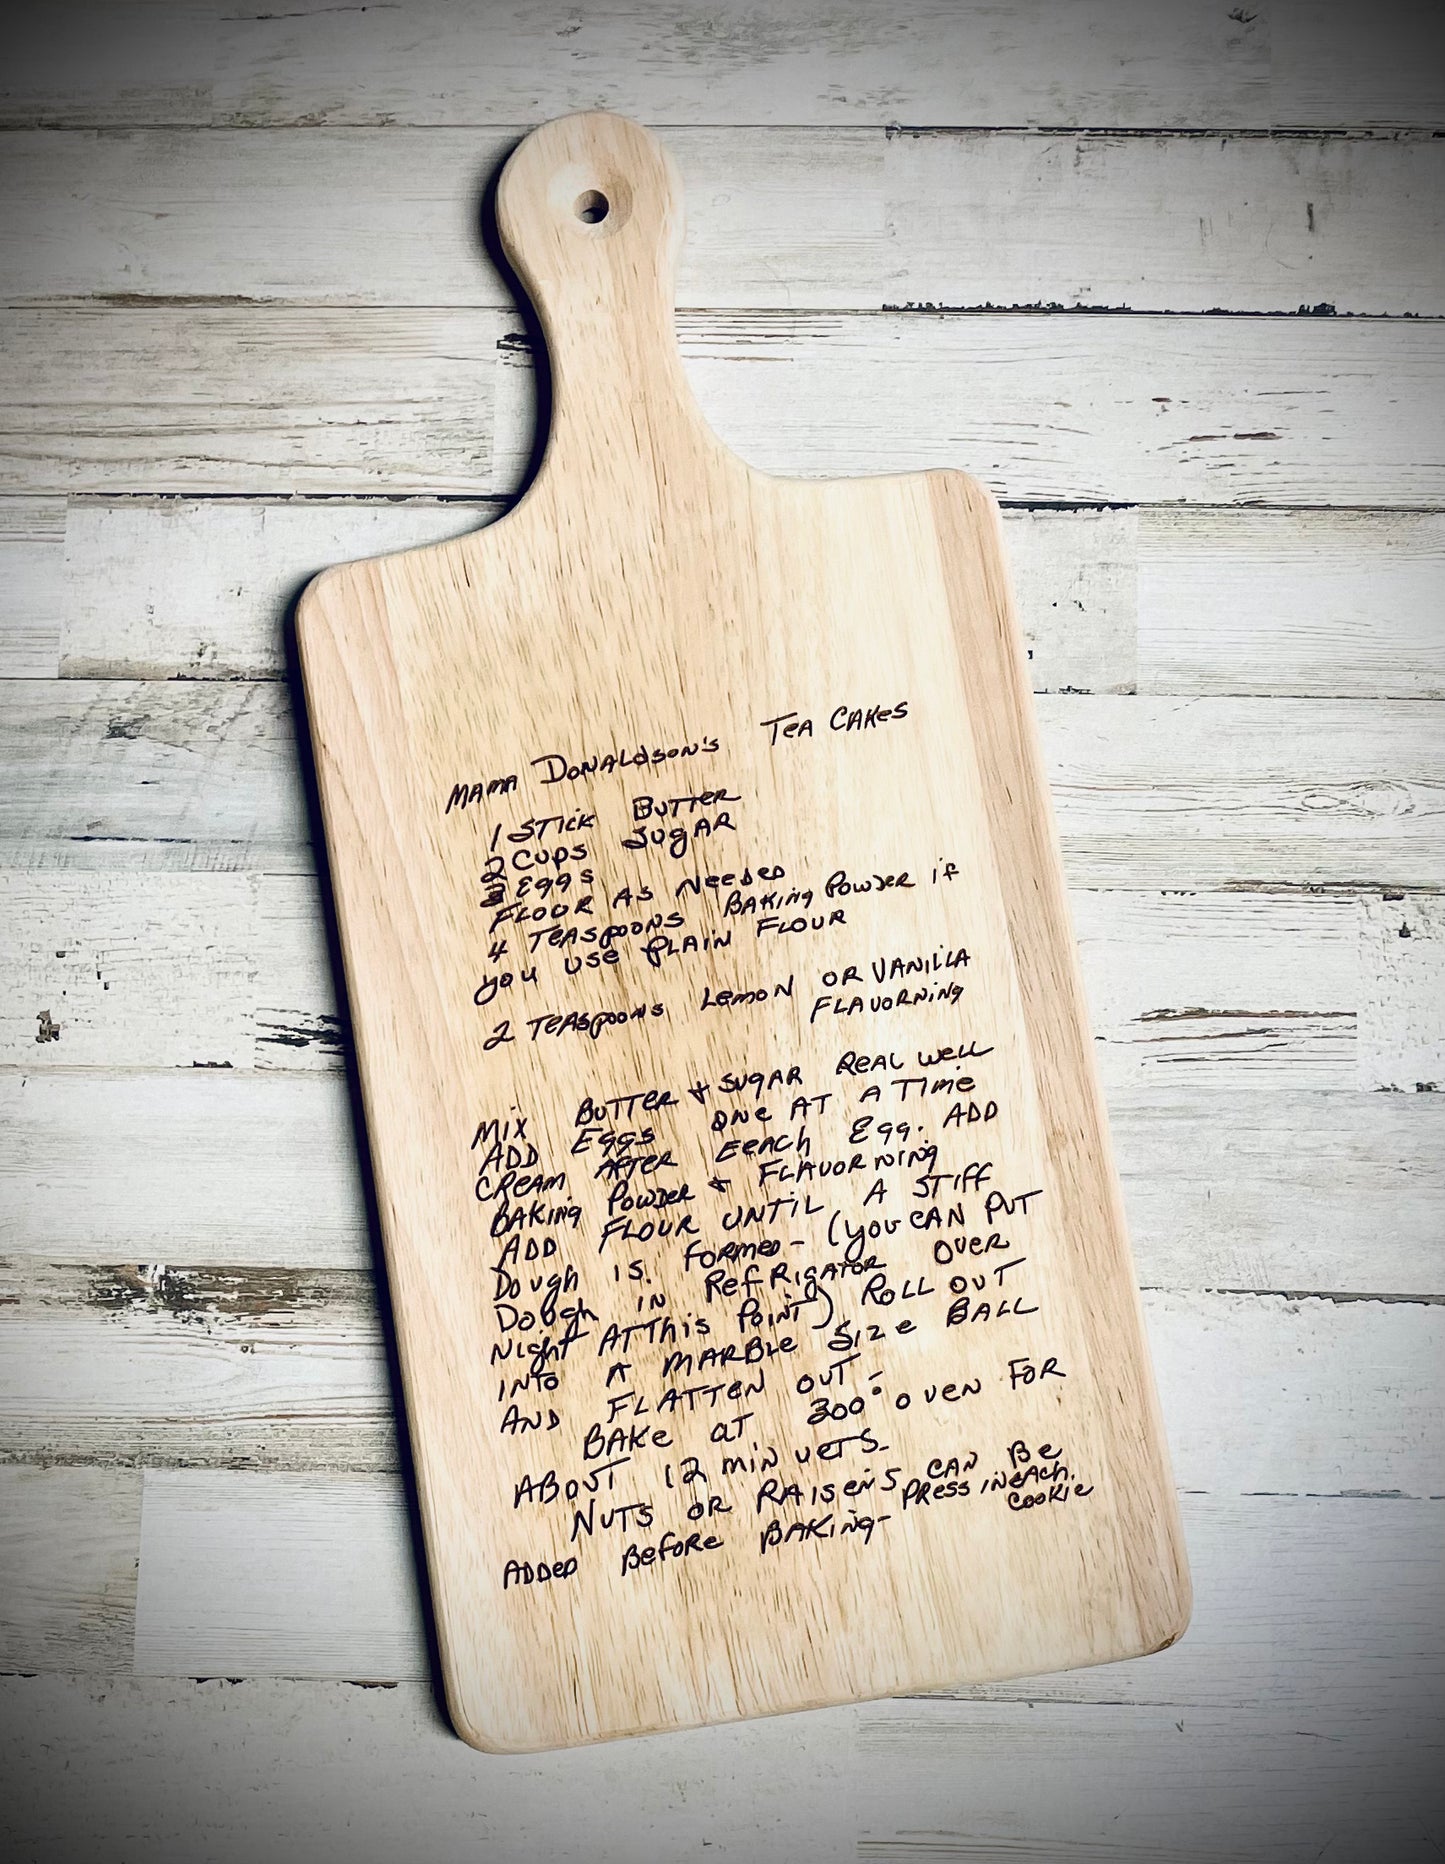 MAMA DONALDSON'S TEA CAKES
1 STICK BUTTER
2 CUPS SUGAR
EGGS
FLOUR AS NEEDED
4 TEASPOONS BAKING POWDER if
you use PLAIN FLOUR
2 TEASPOONS LEMON OR VANILLA
FLAVORNING
MIX BUTTER + SUGAR REAL WELL
ADD EGGS ONE AT A TIME
CREAM AFTER EEACH EGG. ADD
BAKING POWDER + FLAVORNING
ADD FLOUR UNTIL A STIFF
DOUGH IS. FORMED - (YOU CAN PUT
DOUGH IN REFRIGATOR OVER
NIGHT AT THIS POINT) ROLL OUT
INTO A MARBLE SIZE BALL
AND FLATTEN OUT -
BAKE AT 300° OVEN FOR
ABOUT 12 MINUETS -
NUTS OR RAISENS CAN BE
ADDED BEFORE BAKING - PRESS IN EACH.
COOKIE